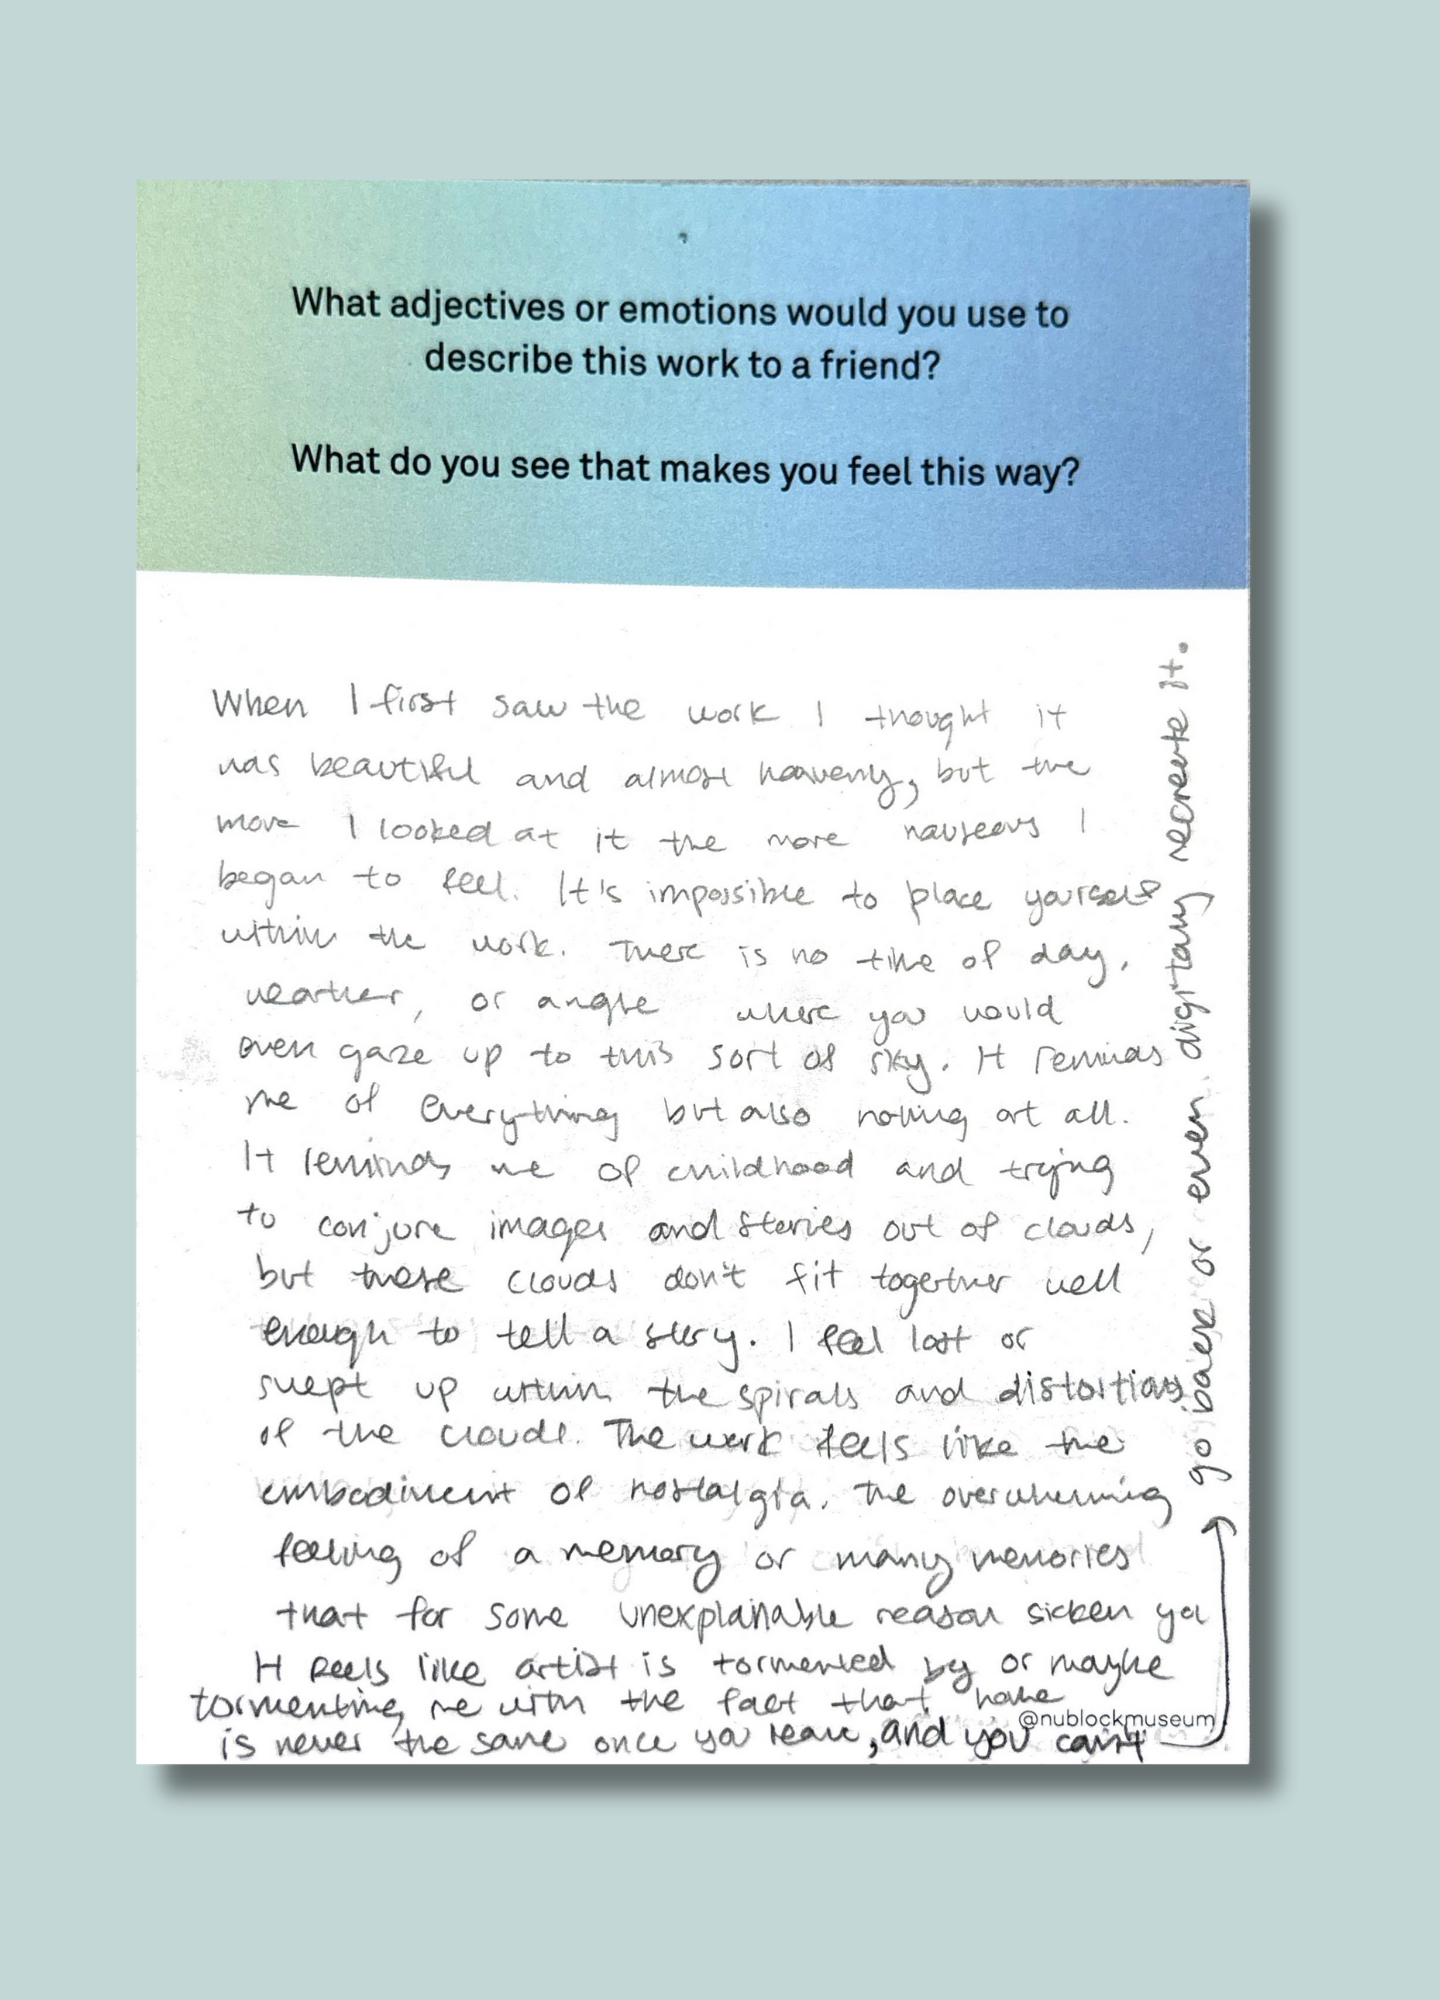 What adjectives or emotions would you use to
describe this work to a friend?
What do you see that makes you feel this way?
When I first saw the work I thought it
was beautiful and almost heavenly, but the
more I looked at it the more nauseous I
began to feel. It's impossible to place yourself
within the work. There is no time of day,
weather, or angle where you would
even gaze up to this sort of sky. It reminds
me of everything but also nothing at all.
It reminds me of childhood and trying
to conjure images and stories out of clouds,
but these clouds don't fit together well
enough to tell a story. I feel lost or
swept up within the spirals and distortions
of the clouds. The work feels like the
embodiment of nostalgia. The overwhelming
feeling of a memory or many memories
that for some unexplainable reason sicken you
It feels like artist is tormented by or maybe
tormenting me with the fact that home
is never the same once you leave, and you can't
go back or even digitally recreate it.
@nublockmuseum